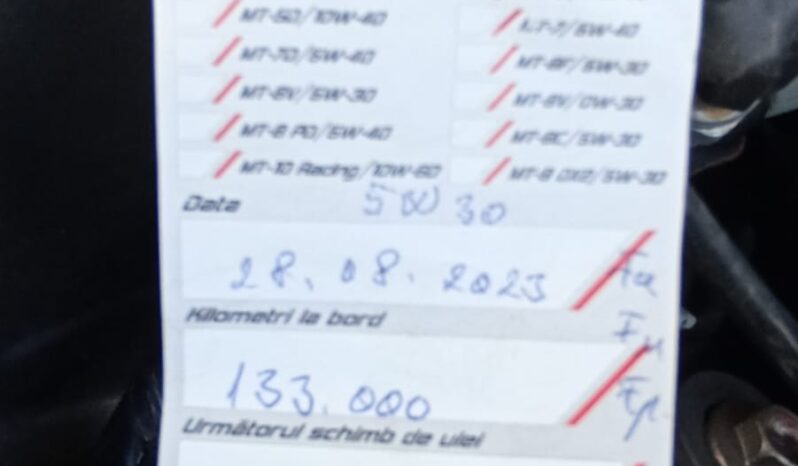 MT-50/10W-40 MT-7/5W-40
MT-70/5W-40 MT-8F/5W-30
MT-8V/5W-30 MT-8V/0W-30
MT-8 PD/5W-40 MT-8C/5W-30
MT-10 Racing/10W-60 MT-8 DX2/5W-30
Data 5W30
28.08.2023 Fa
Kilometri la bord Fu
133.000 Fp
Următorul schimb de ulei